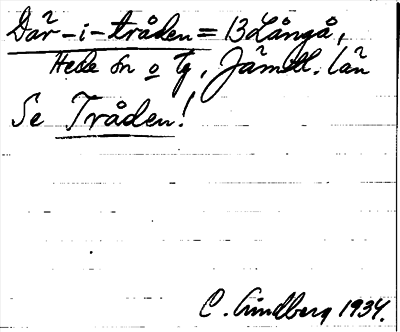 Där-i-tråden = 13 Långå,
Hede sn o tg, Jämtl. län
Se Tråden!
C. Lindberg 1934.